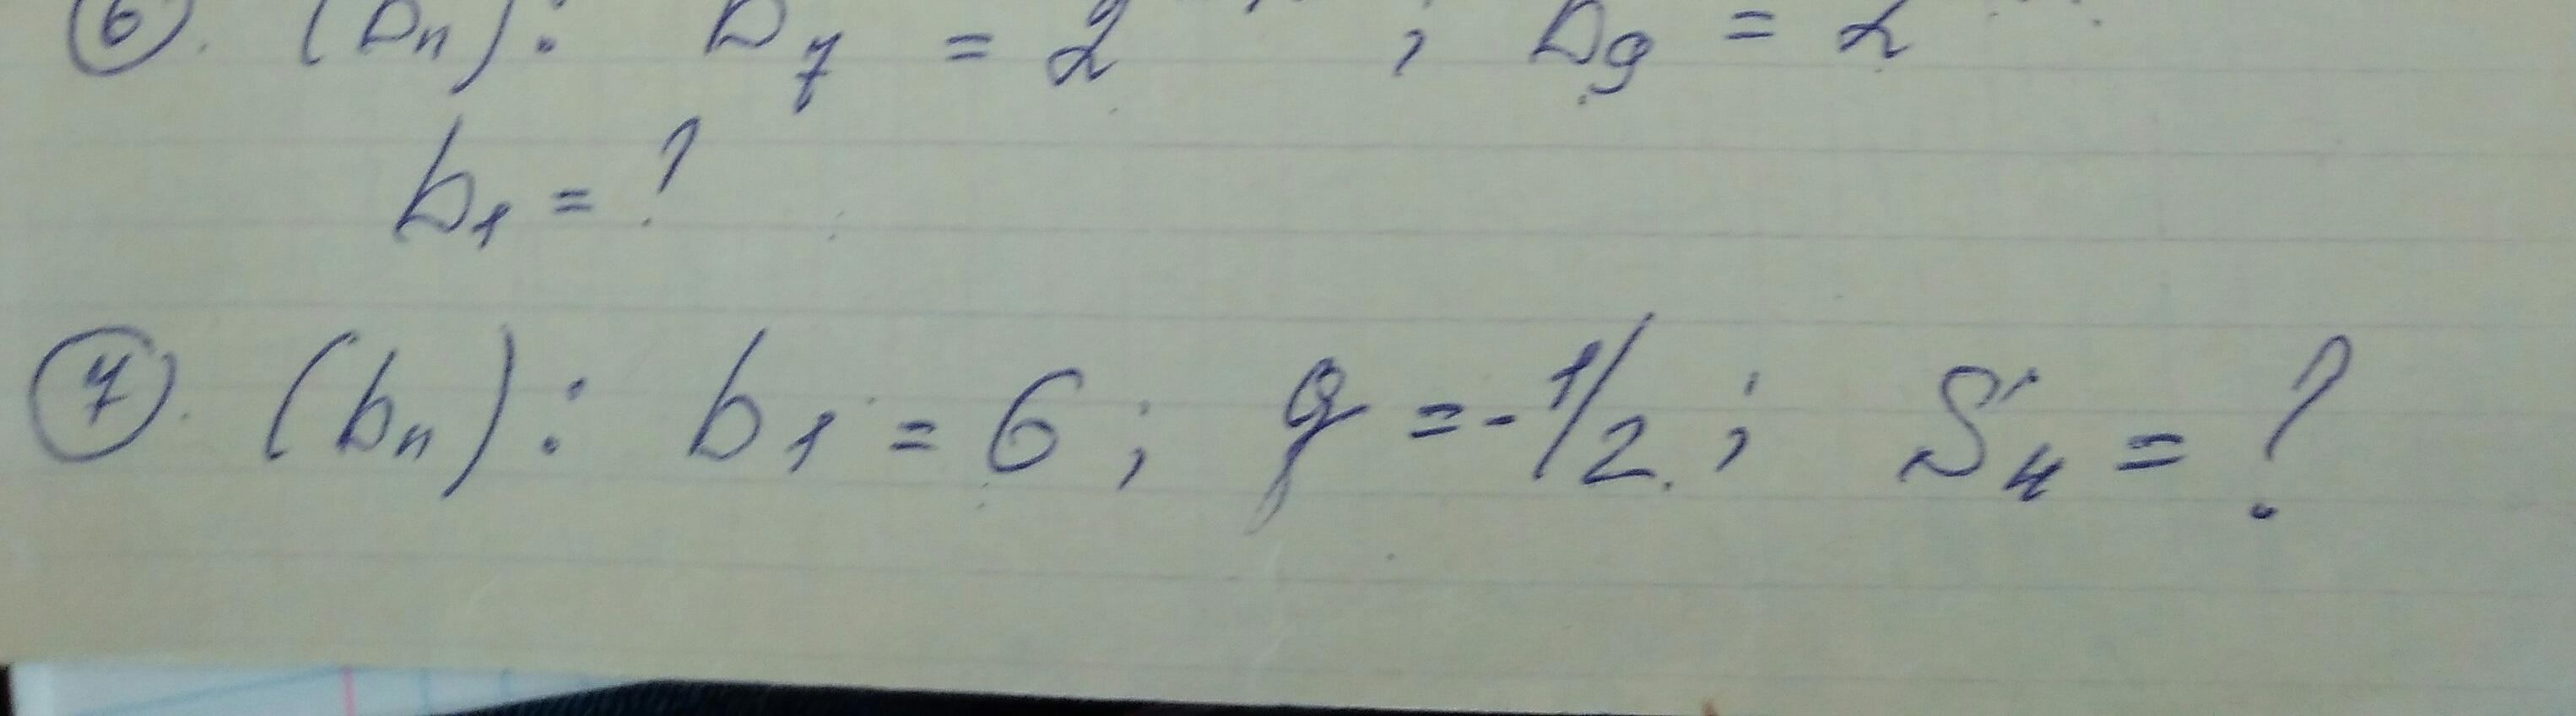 6. (bn): b7 = 2 ; b9 = 2
b1 = ?
7. (bn): b1 = 6; q = -1/2; S4 = ?